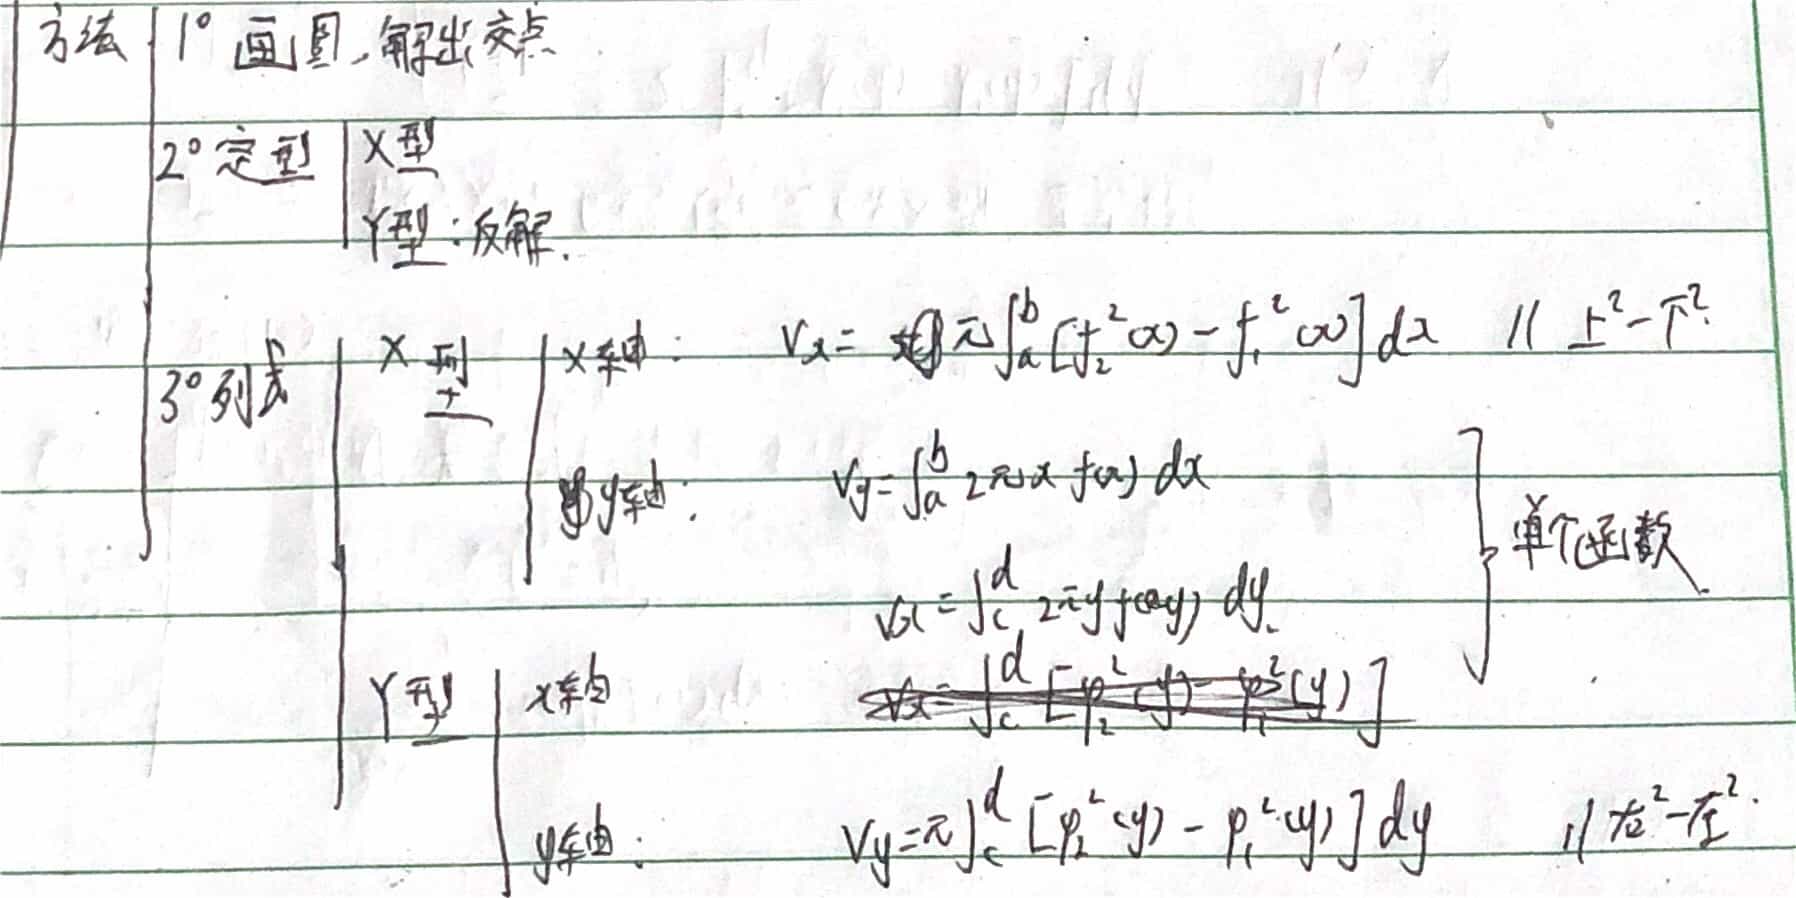 方法 1° 画图,解出交点
2° 定型 X型
Y型:反解.
3° 列式 X型 X轴: Vx= π∫_a^b [f₂²(x) - f₁²(x)] dx // 上²-下².
y轴: Vy=∫_a^b 2πx f(x) dx
单个函数
Vx=∫_c^d 2πy f(y) dy.
Y型 x轴 Vx=∫_c^d [φ₂²(y) - φ₁²(y)]
y轴: Vy=π∫_c^d [φ₂²(y) - φ₁²(y)] dy // 右²-左².